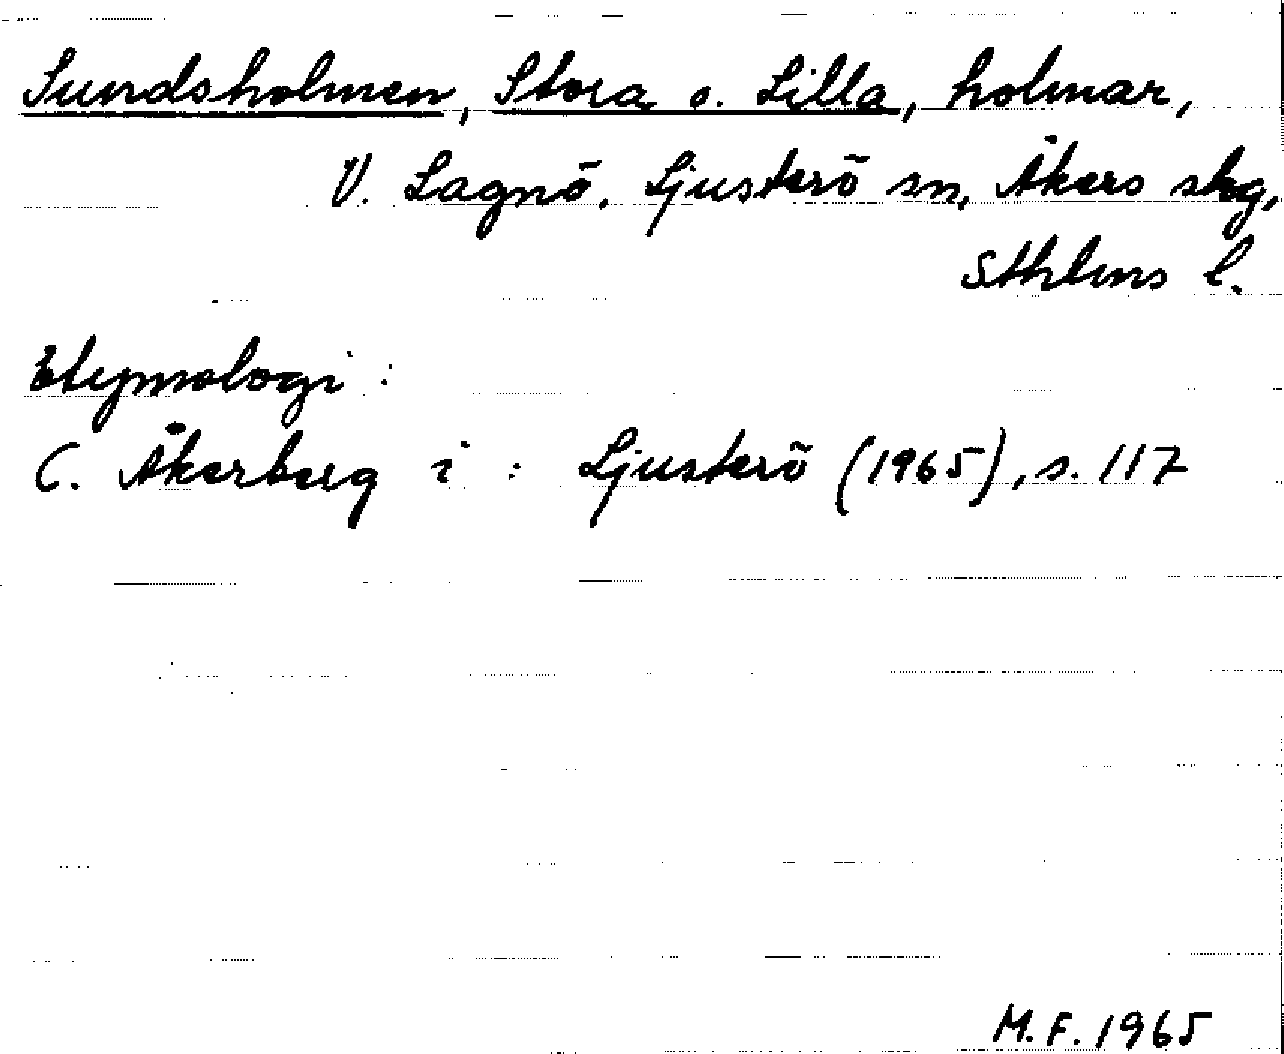 Sundsholmen, Stora o. Lilla, holmar,
V. Lagnö, Ljusterö sn, Åkers skg,
Sthlms l.
Etymologi:
C. Åkerberg i : Ljusterö (1965), s. 117
M.F. 1965